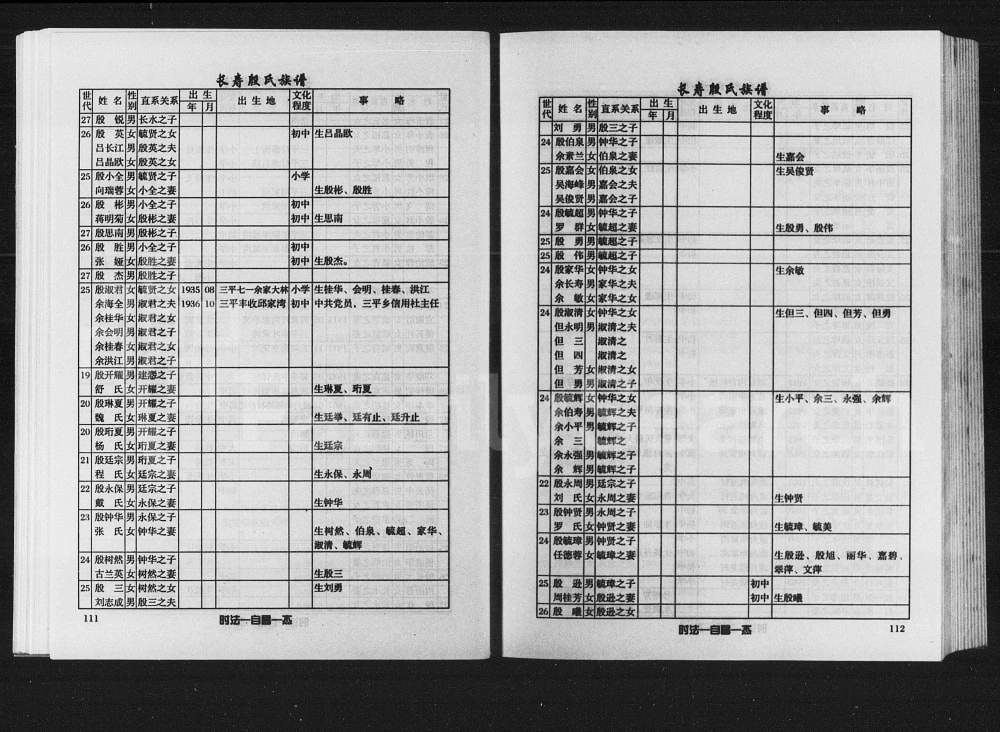 长寿殷氏族谱
世代 姓名 性别 直系关系 出生 年 月 出生地 文化程度 事略
27 殷锐 男 长水之子
26 殷英 女 毓贤之女 初中 生吕晶欧
吕长江 男 殷英之夫
吕晶欧 女 殷英之女
25 殷小全 男 毓贤之子 小学
向瑞蓉 女 小全之妻 生殷彬、殷胜
26 殷彬 男 小全之子 初中
蒋明菊 女 殷彬之妻 初中 生思南
27 殷思南 男 殷彬之子
26 殷胜 男 小全之子 初中
张娅 女 殷胜之妻 初中 生殷杰。
27 殷杰 男 殷胜之子
25 殷淑君 女 毓贤之女 1935 08 三平七一余家大林 小学 生桂华、会明、桂春、洪江
余海全 男 淑君之夫 1936 10 三平丰收邱家湾 初中 中共党员，三平乡信用社主任
余桂华 女 淑君之女
余会明 男 淑君之子
余桂春 女 淑君之女
余洪江 男 淑君之子
19 殷开耀 男 建懑之子
舒氏 女 开耀之妻 生琳夏、珩夏
20 殷琳夏 男 开耀之子
魏氏 女 琳夏之妻 生廷举、廷有止、廷升止
20 殷珩夏 男 开耀之子
杨氏 女 珩夏之妻 生廷宗
21 殷廷宗 男 珩夏之子
程氏 女 廷宗之妻 生永保、永周
22 殷永保 男 廷宗之子
戴氏 女 永保之妻 生钟华
23 殷钟华 男 永保之子
张氏 女 钟华之妻 生树然、伯泉、毓超、家华、
淑清、毓辉
24 殷树然 男 钟华之子
古兰英 女 树然之妻 生殷三
25 殷三 女 树然之女 生刘勇
刘志成 男 殷三之夫
111
长寿殷氏族谱
世代 姓名 性别 直系关系 出生 年 月 出生地 文化程度 事略
刘勇 男 殷三之子
24 殷伯泉 男 钟华之子
余素兰 女 伯泉之妻 生嘉会
25 殷嘉会 女 伯泉之女 生吴俊贤
吴海峰 男 嘉会之夫
吴俊贤 男 嘉会之子
24 殷毓超 男 钟华之子
罗群 女 毓超之妻 生殷勇、殷伟
25 殷勇 男 毓超之子
25 殷伟 男 毓超之子
24 殷家华 女 钟华之女 生余敏
余长寿 男 家华之夫
余敏 女 家华之女
24 殷淑清 女 钟华之女 生但三、但四、但芳、但勇
但永明 男 淑清之夫
但三 淑清之
但四 淑清之
但芳 女 淑清之女
但勇 男 淑清之子
24 殷毓辉 女 钟华之女 生小平、余三、永强、余辉
余伯寿 男 毓辉之夫
余小平 男 毓辉之子
余三 毓辉之
余永强 男 毓辉之子
余辉 男 毓辉之子
22 殷永周 男 廷宗之子
刘氏 女 永周之妻 生钟贤
23 殷钟贤 男 永周之子
罗氏 女 钟贤之妻 生毓璋、毓美
24 殷毓璋 男 钟贤之子
任德蓉 女 毓璋之妻 生殷逊、殷旭、丽华、嘉碧、
翠萍、文萍
25 殷逊 男 毓璋之子 初中
周桂芳 女 殷逊之妻 初中 生殷曦
26 殷曦 女 殷逊之女
112